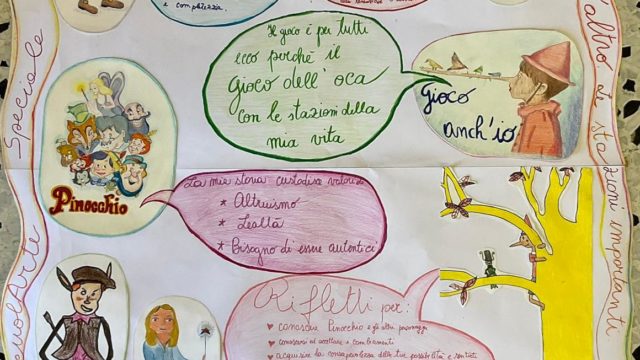 e completezza.
Il gioco è per tutti
ecco perché il
gioco dell'oca
con le stazioni della
mia vita
gioco
anch'io
Speciale
altro le stazioni importanti
Pinocchio
La mia storia custodisce valori di:
* Altruismo
* Lealtà
* Bisogno di essere autentici
Rifletti per:
♥ conoscere Pinocchio e gli altri personaggi
♥ conoscersi ed accettare i cambiamenti
♥ acquisire la consapevolezza delle tue possibilità e